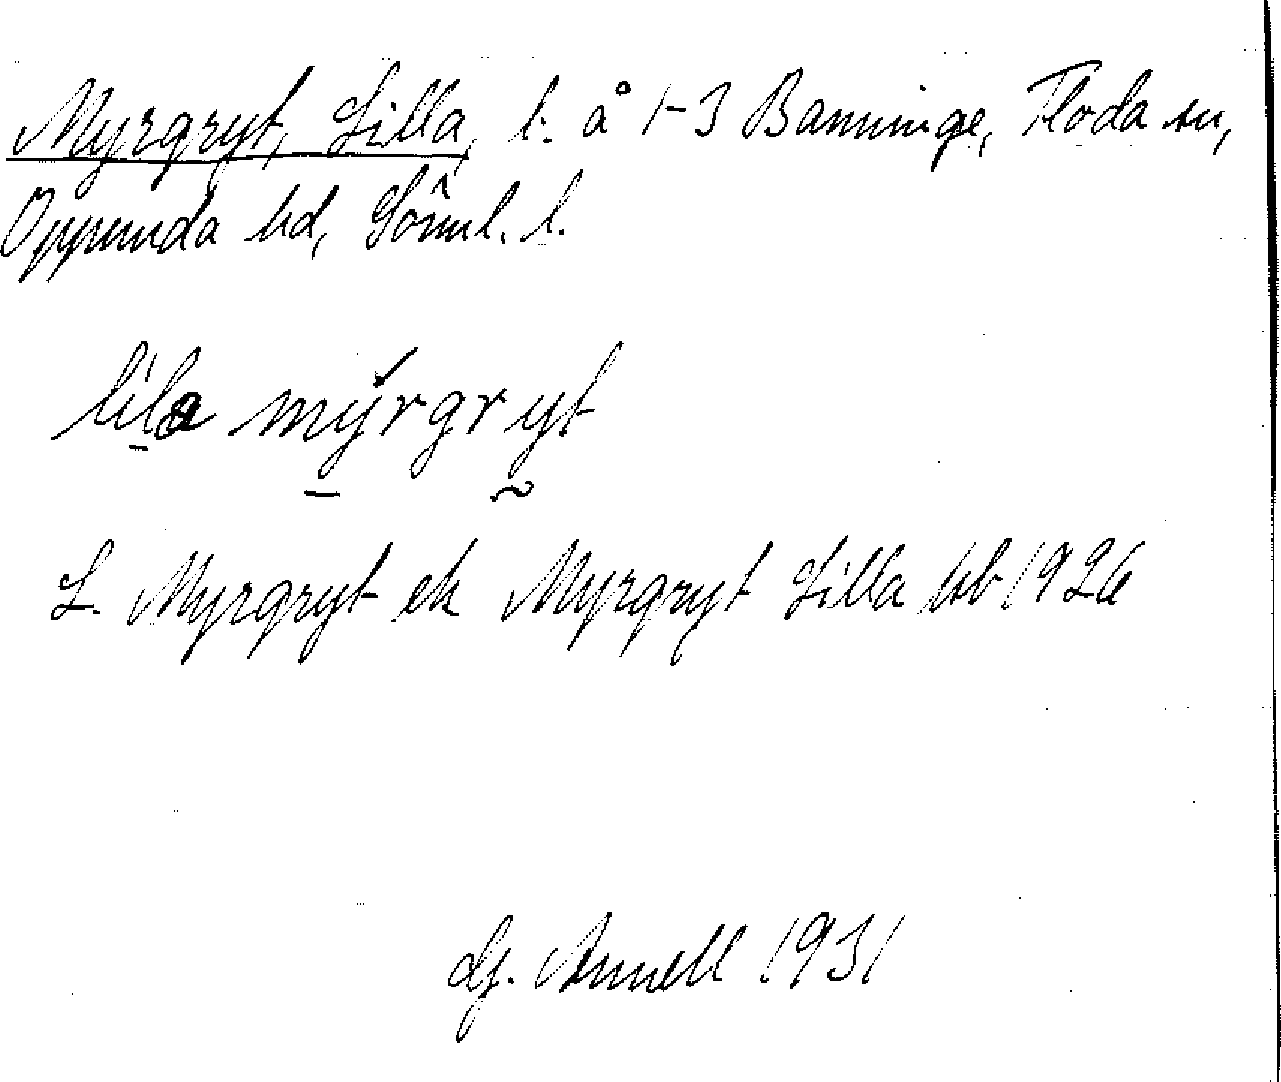 Myrgryt, Lilla, l. å 1-3 Banninge, Floda sn,
Oppunda hd, Sörml. l.
lila mýrgryt
L. Myrgryt ek Myrgryt Lilla hb 1926
Gj. Annell 1931